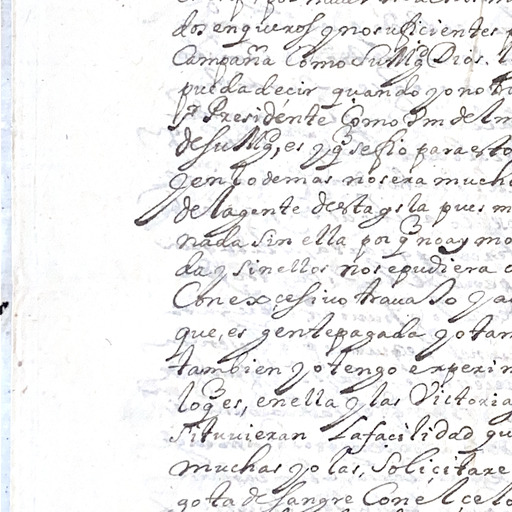 dos en queros y no suficientes p
Campaña Como Su Mg.d Dios. l
pueda decir quando yo no tu
Sr Presidente Como Im del m
de Su Mg.d, es y q.e se fio para esto
y en lo demas no sera mucho
de la gente desta ysla pues m
nada sin ella por q.e no ay mo
da y sin ellos no se pudiera
Con excesivo trauajo y a
que, es gente pagada yo tam
tambien yo tengo experim
lo q.e es, en ella y las Victoria
si tuuieran La facilidad qu
muchas yo las, Solicitare
gota de sangre Con el Celo